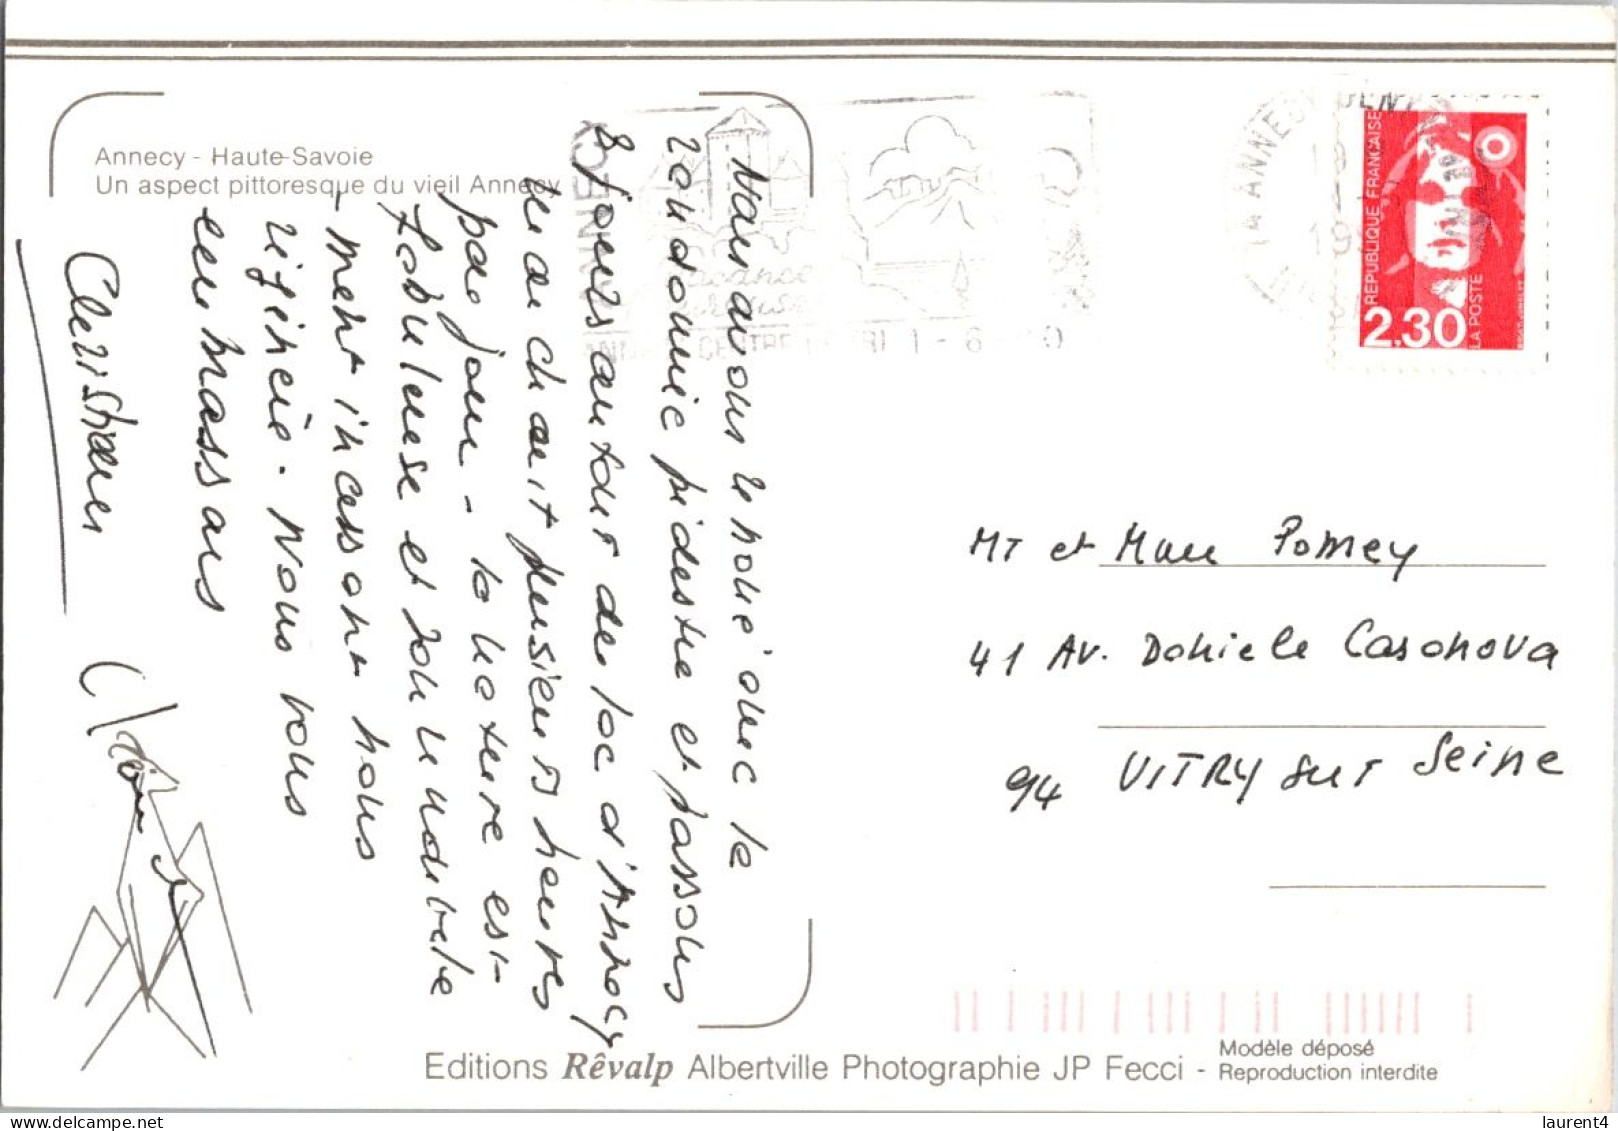 Annecy - Haute-Savoie
Un aspect pittoresque du vieil Annecy
Nous avons renoué avec la
randonnée pédestre et passons
8 jours autour du lac d'Annecy
en marchant plusieurs heures
par jour - la nature est
fabuleuse et son immobile
- ment incessant nous
régénère. Nous vous
embrassons
Christiane
ANNECY
vacances
ANNECY CENTRE
1 - 6
74 ANNECY
REPUBLIQUE FRANÇAISE
LA POSTE
2.30
MT et Mme Pomey
41 Av. Daniele Casanova
94 VITRY sur Seine
Editions Rêvalp Albertville Photographie JP Fecci -
Modèle déposé
Reproduction interdite
laurent4